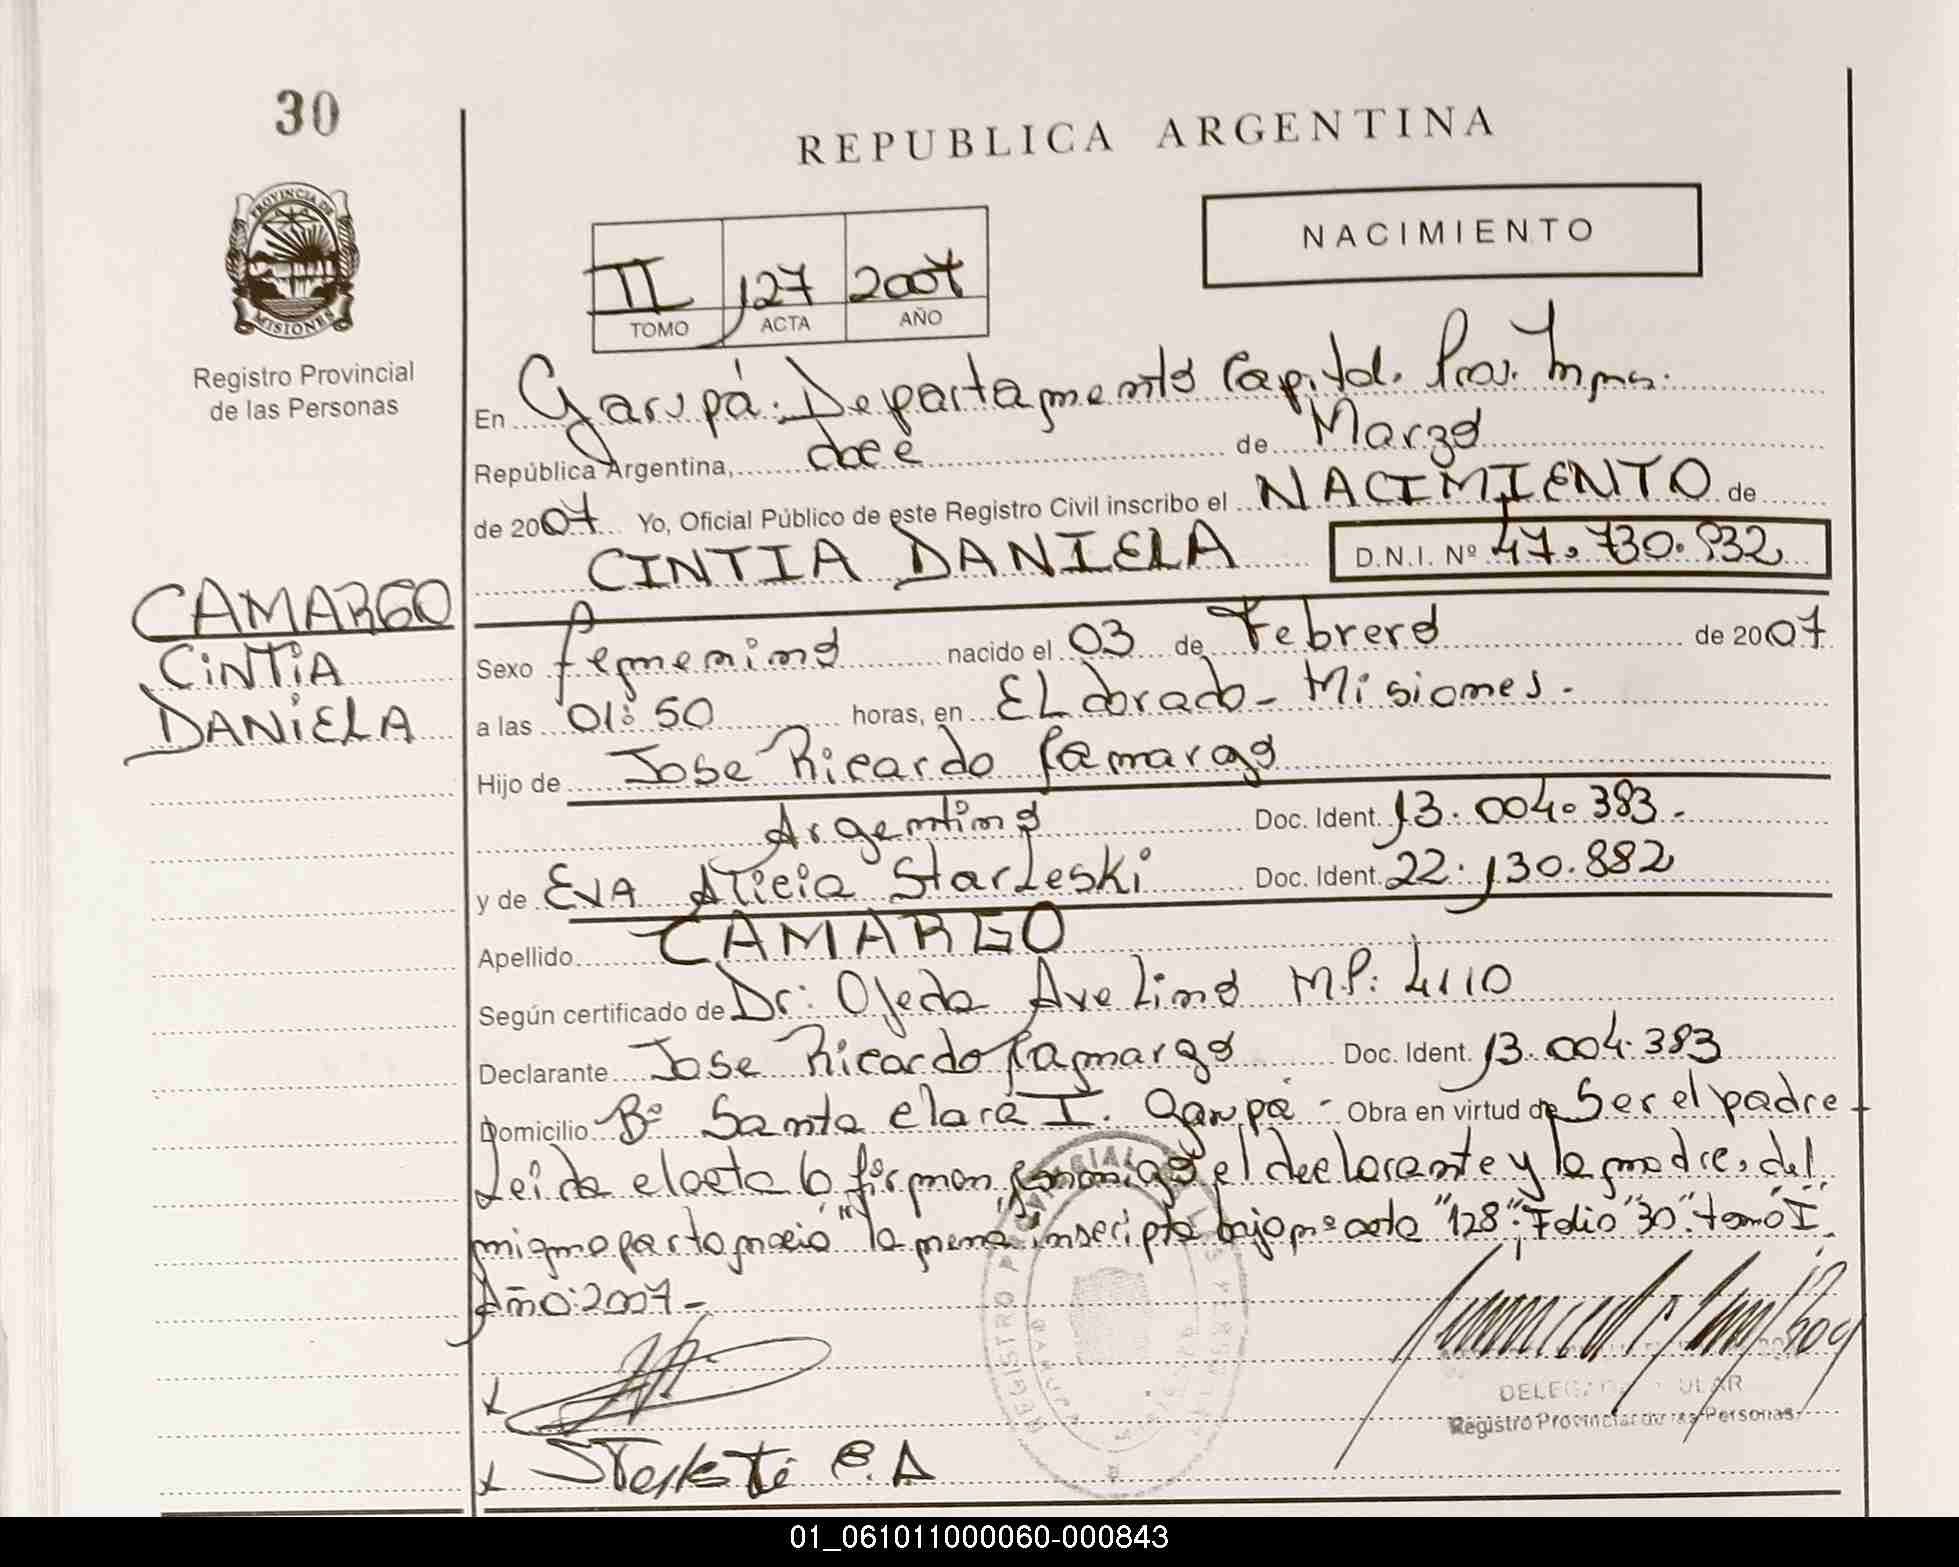 30
REPUBLICA ARGENTINA
PROVINCIA DE
MISIONES
Registro Provincial
de las Personas
NACIMIENTO
II 127 2007
TOMO ACTA AÑO
En Garupá. Departamento Capital. Prov.
República Argentina, doce de Marzo
de 2007 Yo, Oficial Público de este Registro Civil inscribo el NACIMIENTO de
CINTIA DANIELA D.N.I. Nº 47.730.932
CAMARGO
CiNTiA
DANiELA
Sexo femenino nacido el 03 de Febrero de 2007
a las 01:50 horas, en ELdorado - Misiones.-
Hijo de Jose Ricardo Camargo
Argentino Doc. Ident. 13.004.383.-
y de EVA Alicia Starleski Doc. Ident. 22.130.882
Apellido CAMARGO
Según certificado de Dr: Ojeda Avelino MP: 4110
Declarante Jose Ricardo Camargo Doc. Ident. 13.004.383
Domicilio Bº Santa clara I. Garupá - Obra en virtud de Ser el padre -
Leida el acta la firman conmigo el declarante y la madre, del
mismo parto nació "la nena" inscripta bajo nº acta "128". Folio "30". tomo "I".
Año: 2007 -
x
x E.A
Registro Provincial de las Personas
01_061011000060-000843